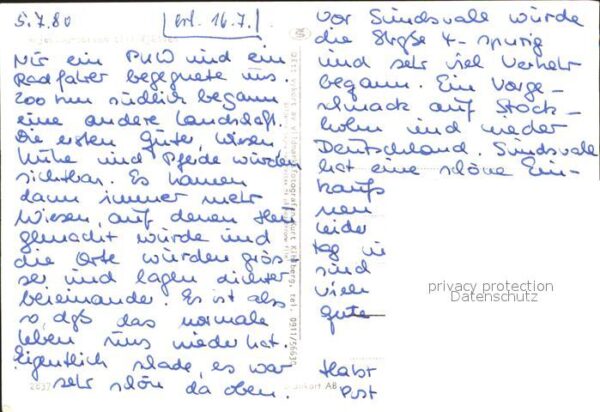 5.7.80 [erl. 16.7.]
Nur ein PKW und ein
Radfahrer begegnete uns.
200 km südlich begann
eine andere Landschaft.
Die ersten Güter, Wiesen,
Kühe und Pferde würden
sichtbar. Es kamen
dann immer mehr
Wiesen, auf denen Heu
gemacht würde und
die Orte würden grös
ser und lagen dichter
beieinander. Es ist also
so, daß das normale
Leben uns wieder hat.
Eigentlich schade, es war
sehr schön da oben.
vor Sundsvale würde
die Straße 4-spurig
und sehr viel Verkehr
begann. Ein Vorge-
schmack auf Stock-
holm und wieder
Deutschland. Sundsvale
hat eine schöne Ein-
kaufs
nen
leider
tag in
sind
viele
Gute
privacy protection
Datenschutz
Post